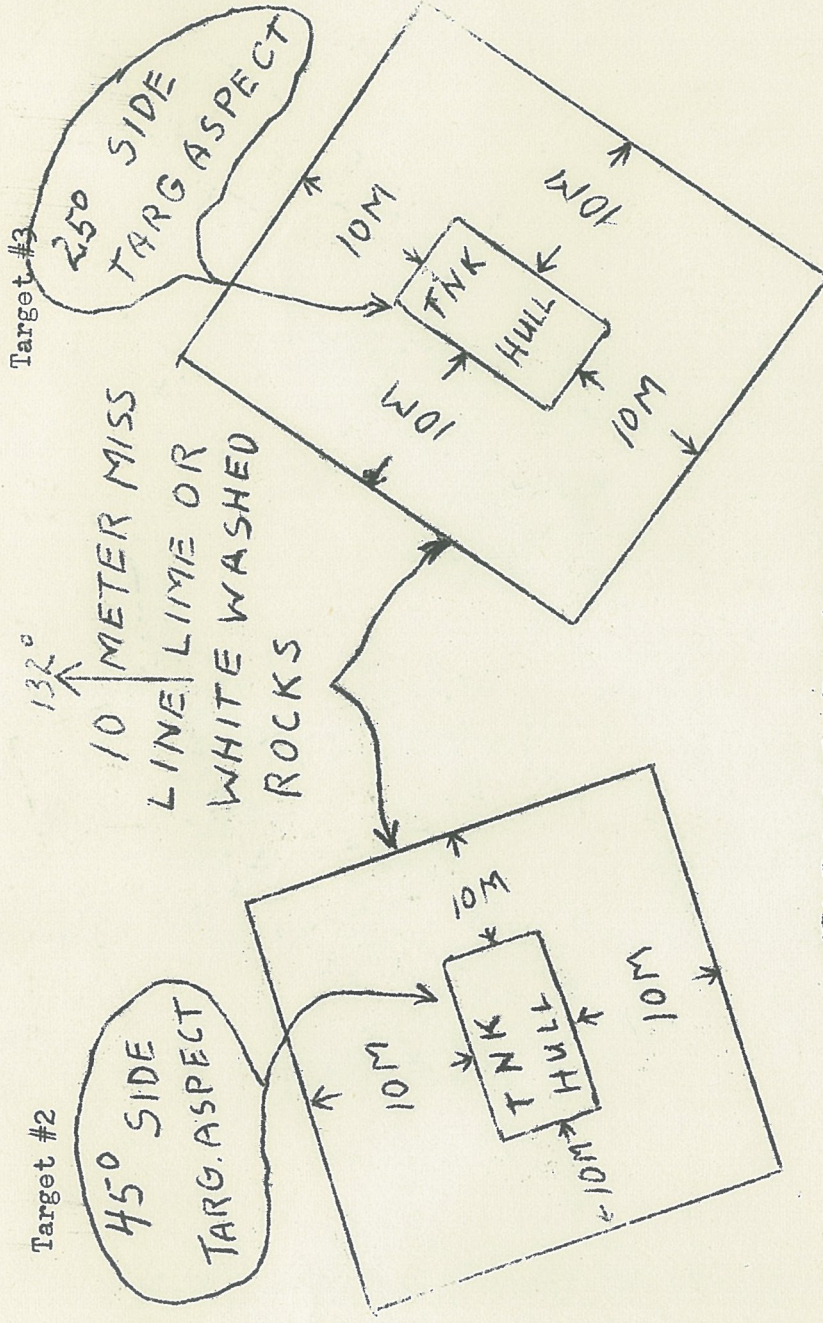 Target #2
45° SIDE
TARG. ASPECT
10M
10M
10M
10M
TNK
HULL
132°
10 METER MISS
LINE LIME OR
WHITE WASHED
ROCKS
Target #3
25° SIDE
TARG ASPECT
10M
10M
10M
10M
TNK
HULL